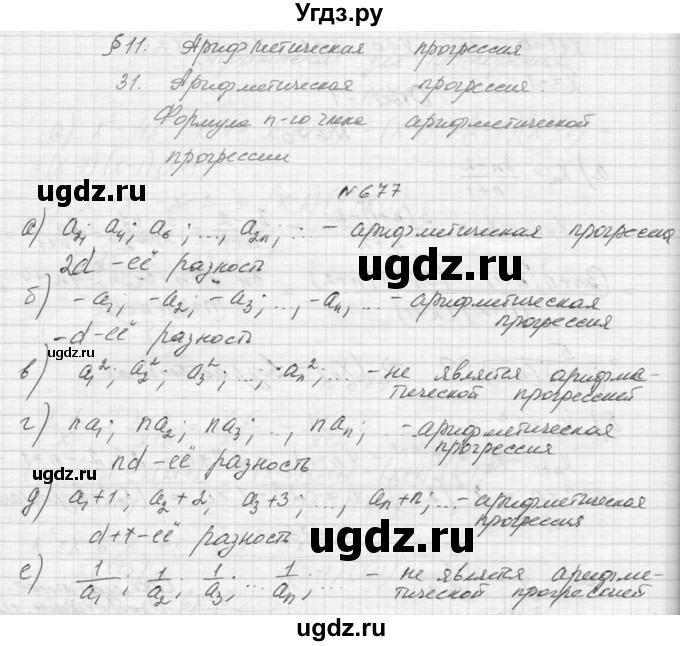 Угдз.ру
§ 11. Арифметическая прогрессия
31. Арифметическая прогрессия.
Формула n-го члена арифметической
прогрессии
№677
а) a₂; a₄; a₆; ..., a₂ₙ, ... – арифметическая прогрессия
2d – её разность
ugdz.ru
ugdz.ru
б) -a₁; -a₂; -a₃; ..., -aₙ, ... – арифметическая
прогрессия
-d – её разность
ugdz.ru
ugdz.ru
в) a₁²; a₂²; a₃²; ...; aₙ²; ... – не является арифме-
тической прогрессией
ugdz.ru
г) na₁; na₂; na₃; .., naₙ; – арифметическая
прогрессия
nd – её разность
ugdz.ru
д) a₁+1, a₂+2; a₃+3; ..., aₙ+n; ... – арифметическая
прогрессия
d+1 – её разность
ugdz.ru
ugdz.ru
е) 1/a₁; 1/a₂; 1/a₃; ... 1/aₙ; ... – не является арифме-
тической прогрессией
ugdz.ru